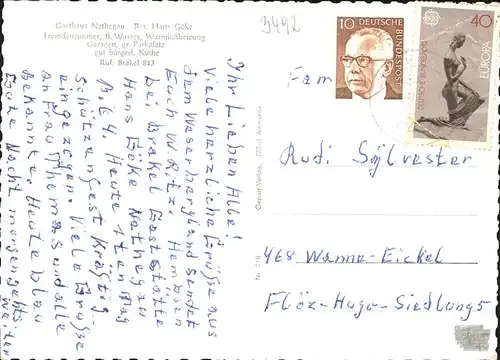 Gasthaus Nethegau Bes. Hans Göke
Fremdenzimmer, fl. Wasser, Warmluftheizung
Garagen, gr. Parkplatz
gut bürgerl. Küche
Ruf: Brakel 843
3492
10 DEUTSCHE BUNDESPOST
40
EUROPA
DEUTSCHE BUNDESPOST
Ihr Lieben Alle!
Viele herzliche Grüße aus
dem Weserbergland sendet
Euch W. Ritz. Hembsen
Bei Brakel Gaststätte
Hans Göke Nathegau
Bis 4. Heute 1ten Tag
Schützenfest kräftig
eingezogen. Viele Grüße
an Frau Thema und alle
Bekannter. Heute blau
Gute Nacht morgen gehts
weiter
Fam
Rudi Sylvester
468 Wanne-Eickel
Flöz-Hugo-Siedlung 5
Nr. 218